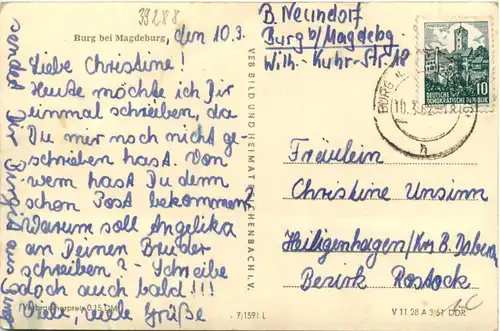 39288
Burg bei Magdeburg, den 10.3.
Liebe Christine!
Heute möchte ich Dir
einmal schreiben, da
Du mir noch nicht ge-
schrieben hast. Von
wem hast Du denn
schon Post bekommen?
Warum soll Angelika
an Deinen Bruder
schreiben? - Schreibe
doch auch bald!!!
Viele, viele Grüße
sendet Dir Birgit aus
Burg
Verbraucherpreis 0.15 DM
7/1591 L
VEB BILD UND HEIMAT REICHENBACH I. V.
B. Neundorf
Burg b/Magdebg.
Wilh.-Kuhr-Str. 18
DEUTSCHE
DEMOKRATISCHE REPUBLIK
10
BURG
10.3.62
h
Fräulein
Christine Unsinn
Heiligenhagen/Krs B. Doberan
Bezirk Rostock
V 11 28 A 3/61 DDR